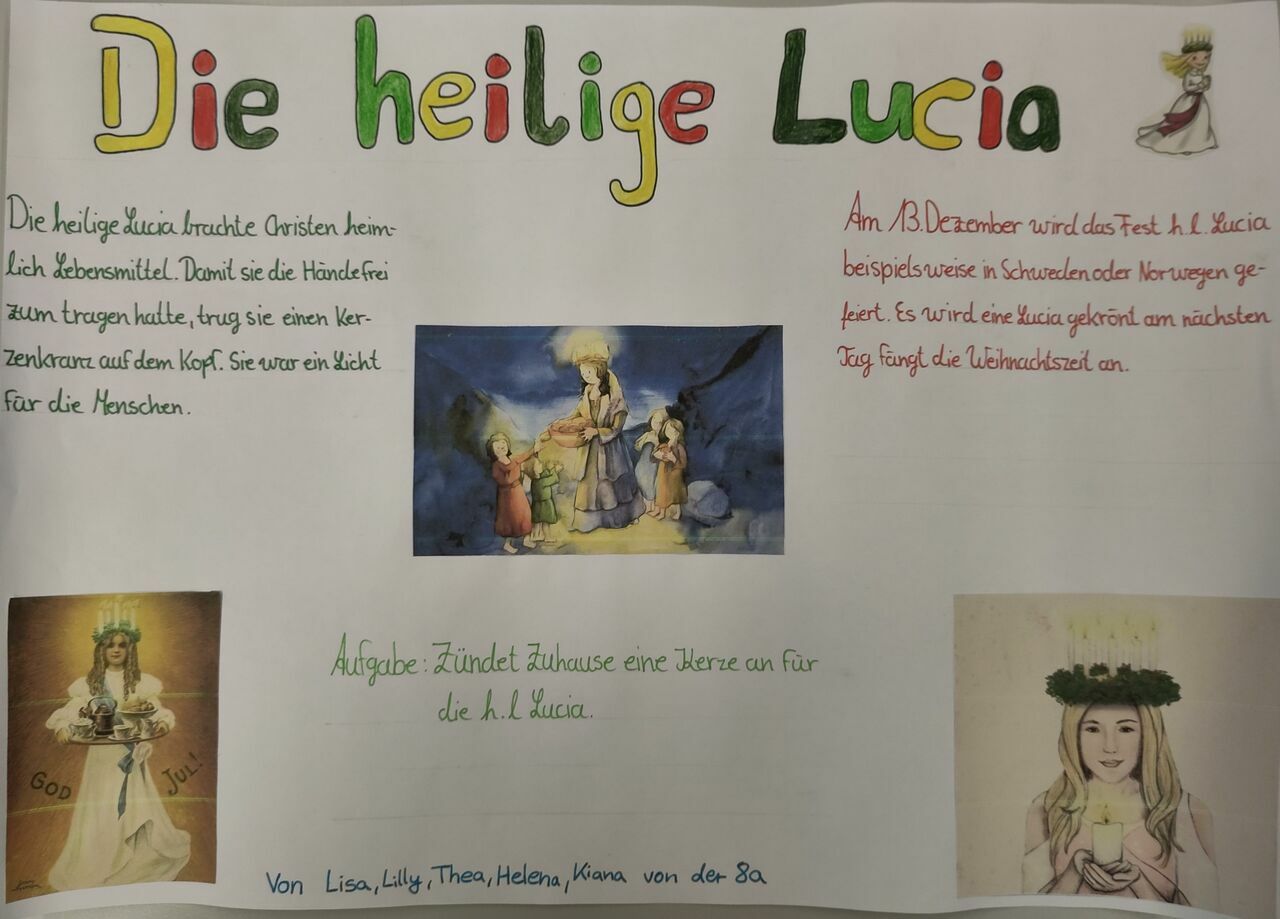 Die heilige Lucia
Die heilige Lucia brachte Christen heim-
lich Lebensmittel. Damit sie die Hände frei
zum tragen hatte, trug sie einen Ker-
zenkranz auf dem Kopf. Sie war ein Licht
für die Menschen.
Am 13. Dezember wird das Fest h.l. Lucia
beispielsweise in Schweden oder Norwegen ge-
feiert. Es wird eine Lucia gekrönt am nächsten
Tag fängt die Weihnachtszeit an.
Aufgabe: Zündet Zuhause eine Kerze an für
die h.l Lucia.
GOD JUL!
Von Lisa, Lilly, Thea, Helena, Kiana von der 8a